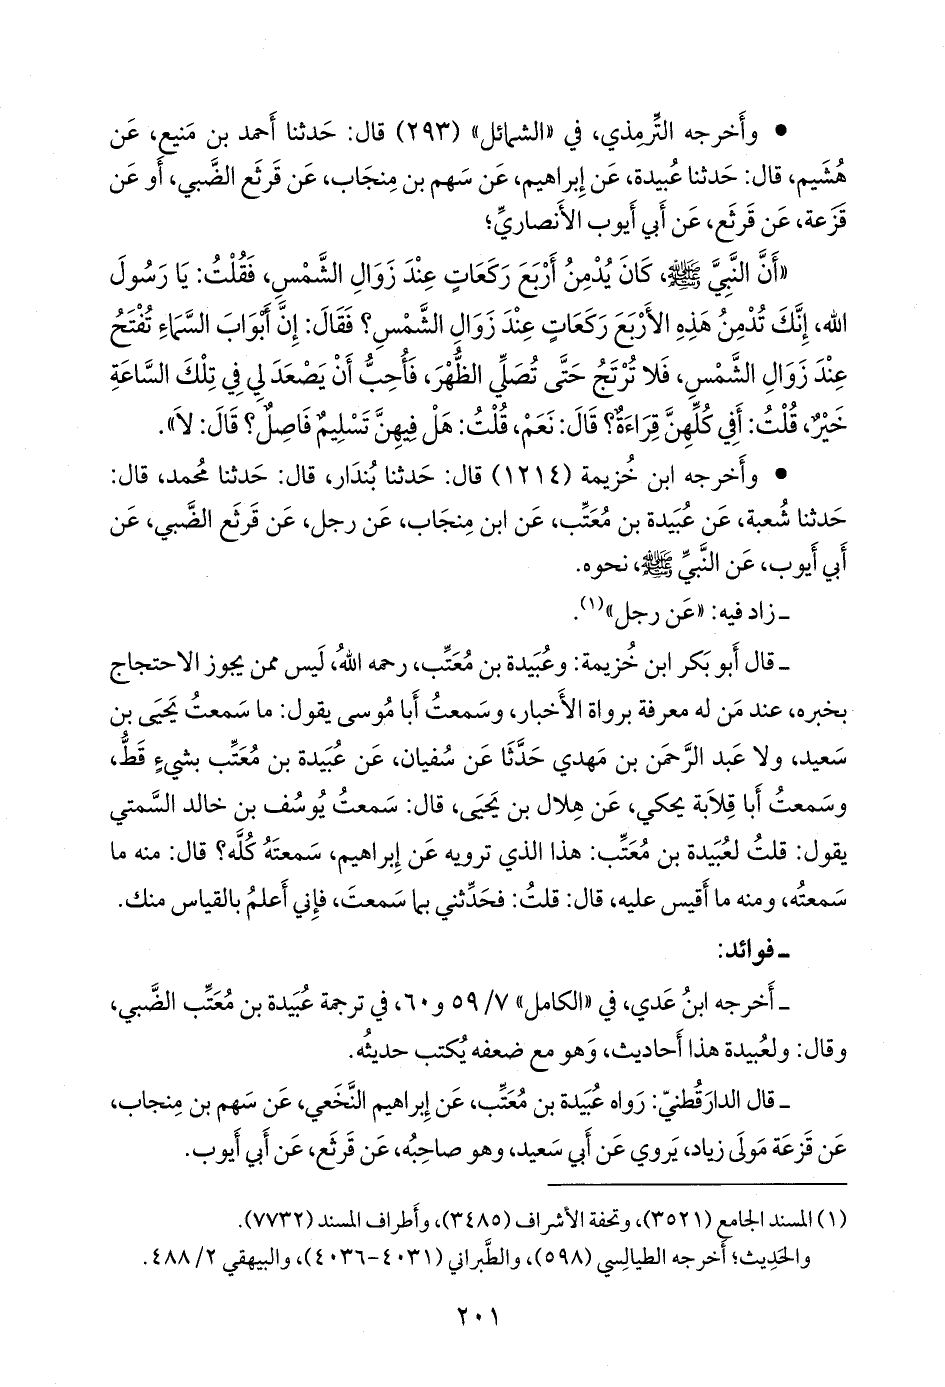 • وأَخرجه التِّرمِذي، في «الشمائل» (٢٩٣) قال: حَدثنا أَحمد بن مَنيع، عَن
هُشَيم، قال: حَدثنا عُبيدة، عَن إِبراهيم، عَن سَهم بن مِنجَاب، عَن قَرثَع الضَّبي، أَو عَن
قَزَعة، عَن قَرثَع، عَن أَبي أَيوب الأَنصاريِّ؛
«أَنَّ النَّبِيَّ ﷺ، كَانَ يُدْمِنُ أَرْبَعَ رَكَعَاتٍ عِنْدَ زَوَالِ الشَّمْسِ، فَقُلْتُ: يَا رَسُولَ
الله، إِنَّكَ تُدْمِنُ هَذِهِ الأَرْبَعَ رَكَعَاتٍ عِنْدَ زَوَالِ الشَّمْسِ؟ فَقَالَ: إِنَّ أَبْوَابَ السَّمَاءِ تُفْتَحُ
عِنْدَ زَوَالِ الشَّمْسِ، فَلَا تُرْتَجُ حَتَّى تُصَلِّيَ الظُّهْرَ، فَأُحِبُّ أَنْ يَصْعَدَ لِي فِي تِلْكَ السَّاعَةِ
خَيْرٌ، قُلْتُ: أَفِي كُلِّهِنَّ قِرَاءَةٌ؟ قَالَ: نَعَمْ، قُلْتُ: هَلْ فِيهِنَّ تَسْلِيمٌ فَاصِلٌ؟ قَالَ: لَا».
• وأَخرجه ابن خُزيمة (١٢١٤) قال: حَدثنا بُندَار، قال: حَدثنا مُحمد، قال:
حَدثنا شُعبة، عَن عُبَيدة بن مُعَتِّب، عَن ابن مِنجَاب، عَن رجل، عَن قَرثَع الضَّبي، عَن
أَبي أَيوب، عَن النَّبيِّ ﷺ، نحوه.
ـ زاد فيه: «عَن رجل»(١).
ـ قال أَبو بَكر ابن خُزيمة: وعُبَيدة بن مُعَتِّب، رحمه اللهُ، لَيس ممن يجوز الاحتجاج
بخبره، عند مَن له معرفة برواة الأَخبار، وسَمعتُ أَبا مُوسى يقول: ما سَمعتُ يَحيَى بن
سَعيد، ولا عَبد الرَّحمَن بن مَهدي حَدَّثَا عَن سُفيان، عَن عُبَيدة بن مُعَتِّب بشيءٍ قَطُّ،
وسَمعتُ أَبا قِلاَبة يحكي، عَن هِلال بن يَحيَى، قال: سَمعتُ يُوسُف بن خالد السَّمتي
يقول: قلتُ لعُبَيدة بن مُعَتِّب: هذا الذي ترويه عَن إِبراهيم، سَمعتَهُ كُلَّه؟ قال: منه ما
سَمعتُه، ومنه ما أَقيس عليه، قال: قلتُ: فحَدِّثني بما سَمعتَ، فإِني أَعلمُ بالقياس منك.
ـ فوائد:
ـ أَخرجه ابنُ عَدي، في «الكامل» ٧/ ٥٩ و٦٠، في ترجمة عُبَيدة بن مُعَتِّب الضَّبي،
وقال: ولعُبيدة هذا أَحاديث، وَهو مع ضعفه يُكتب حديثُه.
ـ قال الدارَقُطنيّ: رَواه عُبَيدة بن مُعَتِّب، عَن إِبراهيم النَّخَعي، عَن سَهم بن مِنجاب،
عَن قَزعَة مَولَى زياد، يَروي عَن أَبي سَعيد، وهو صاحِبُه، عَن قَرثَع، عَن أَبي أَيوب.
(١) المسند الجامع (٣٥٢١)، وتحفة الأشراف (٣٤٨٥)، وأَطراف المسند (٧٧٣٢).
والحَدِيث؛ أَخرجه الطيالِسي (٥٩٨)، والطَّبراني (٤٠٣١-٤٠٣٦)، والبيهقي ٢/ ٤٨٨.
٢٠١